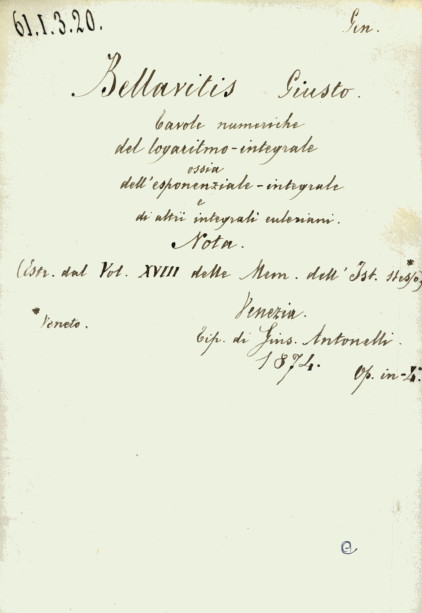 61.1.3.20.
Gen.
Bellavitis Giusto.
Tavole numeriche
del logaritmo-integrale
ossia
dell'esponenziale-integrale
e
di altri integrali euleriani.
Nota.
(Estr. dal Vol. XVIII delle Mem. dell' Ist. stesso*)
Venezia.
*Veneto.
Tip. di Gius. Antonelli.
1874.
Op. in-4.°